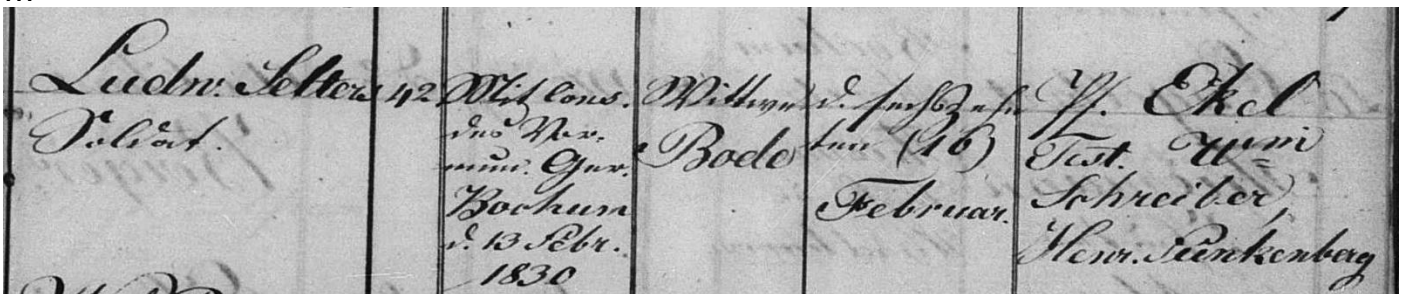 Ludw. Selters
Soldat.
42
Mit Cons.
des Vor-
mun. Ger.
Bochum
d. 13 Febr.
1830
Wittwe
Bode
d. sechszehn
ten (16)
Februar.
Pf. Ekel
Test.
Schreiber,
Henr. Funkenberg